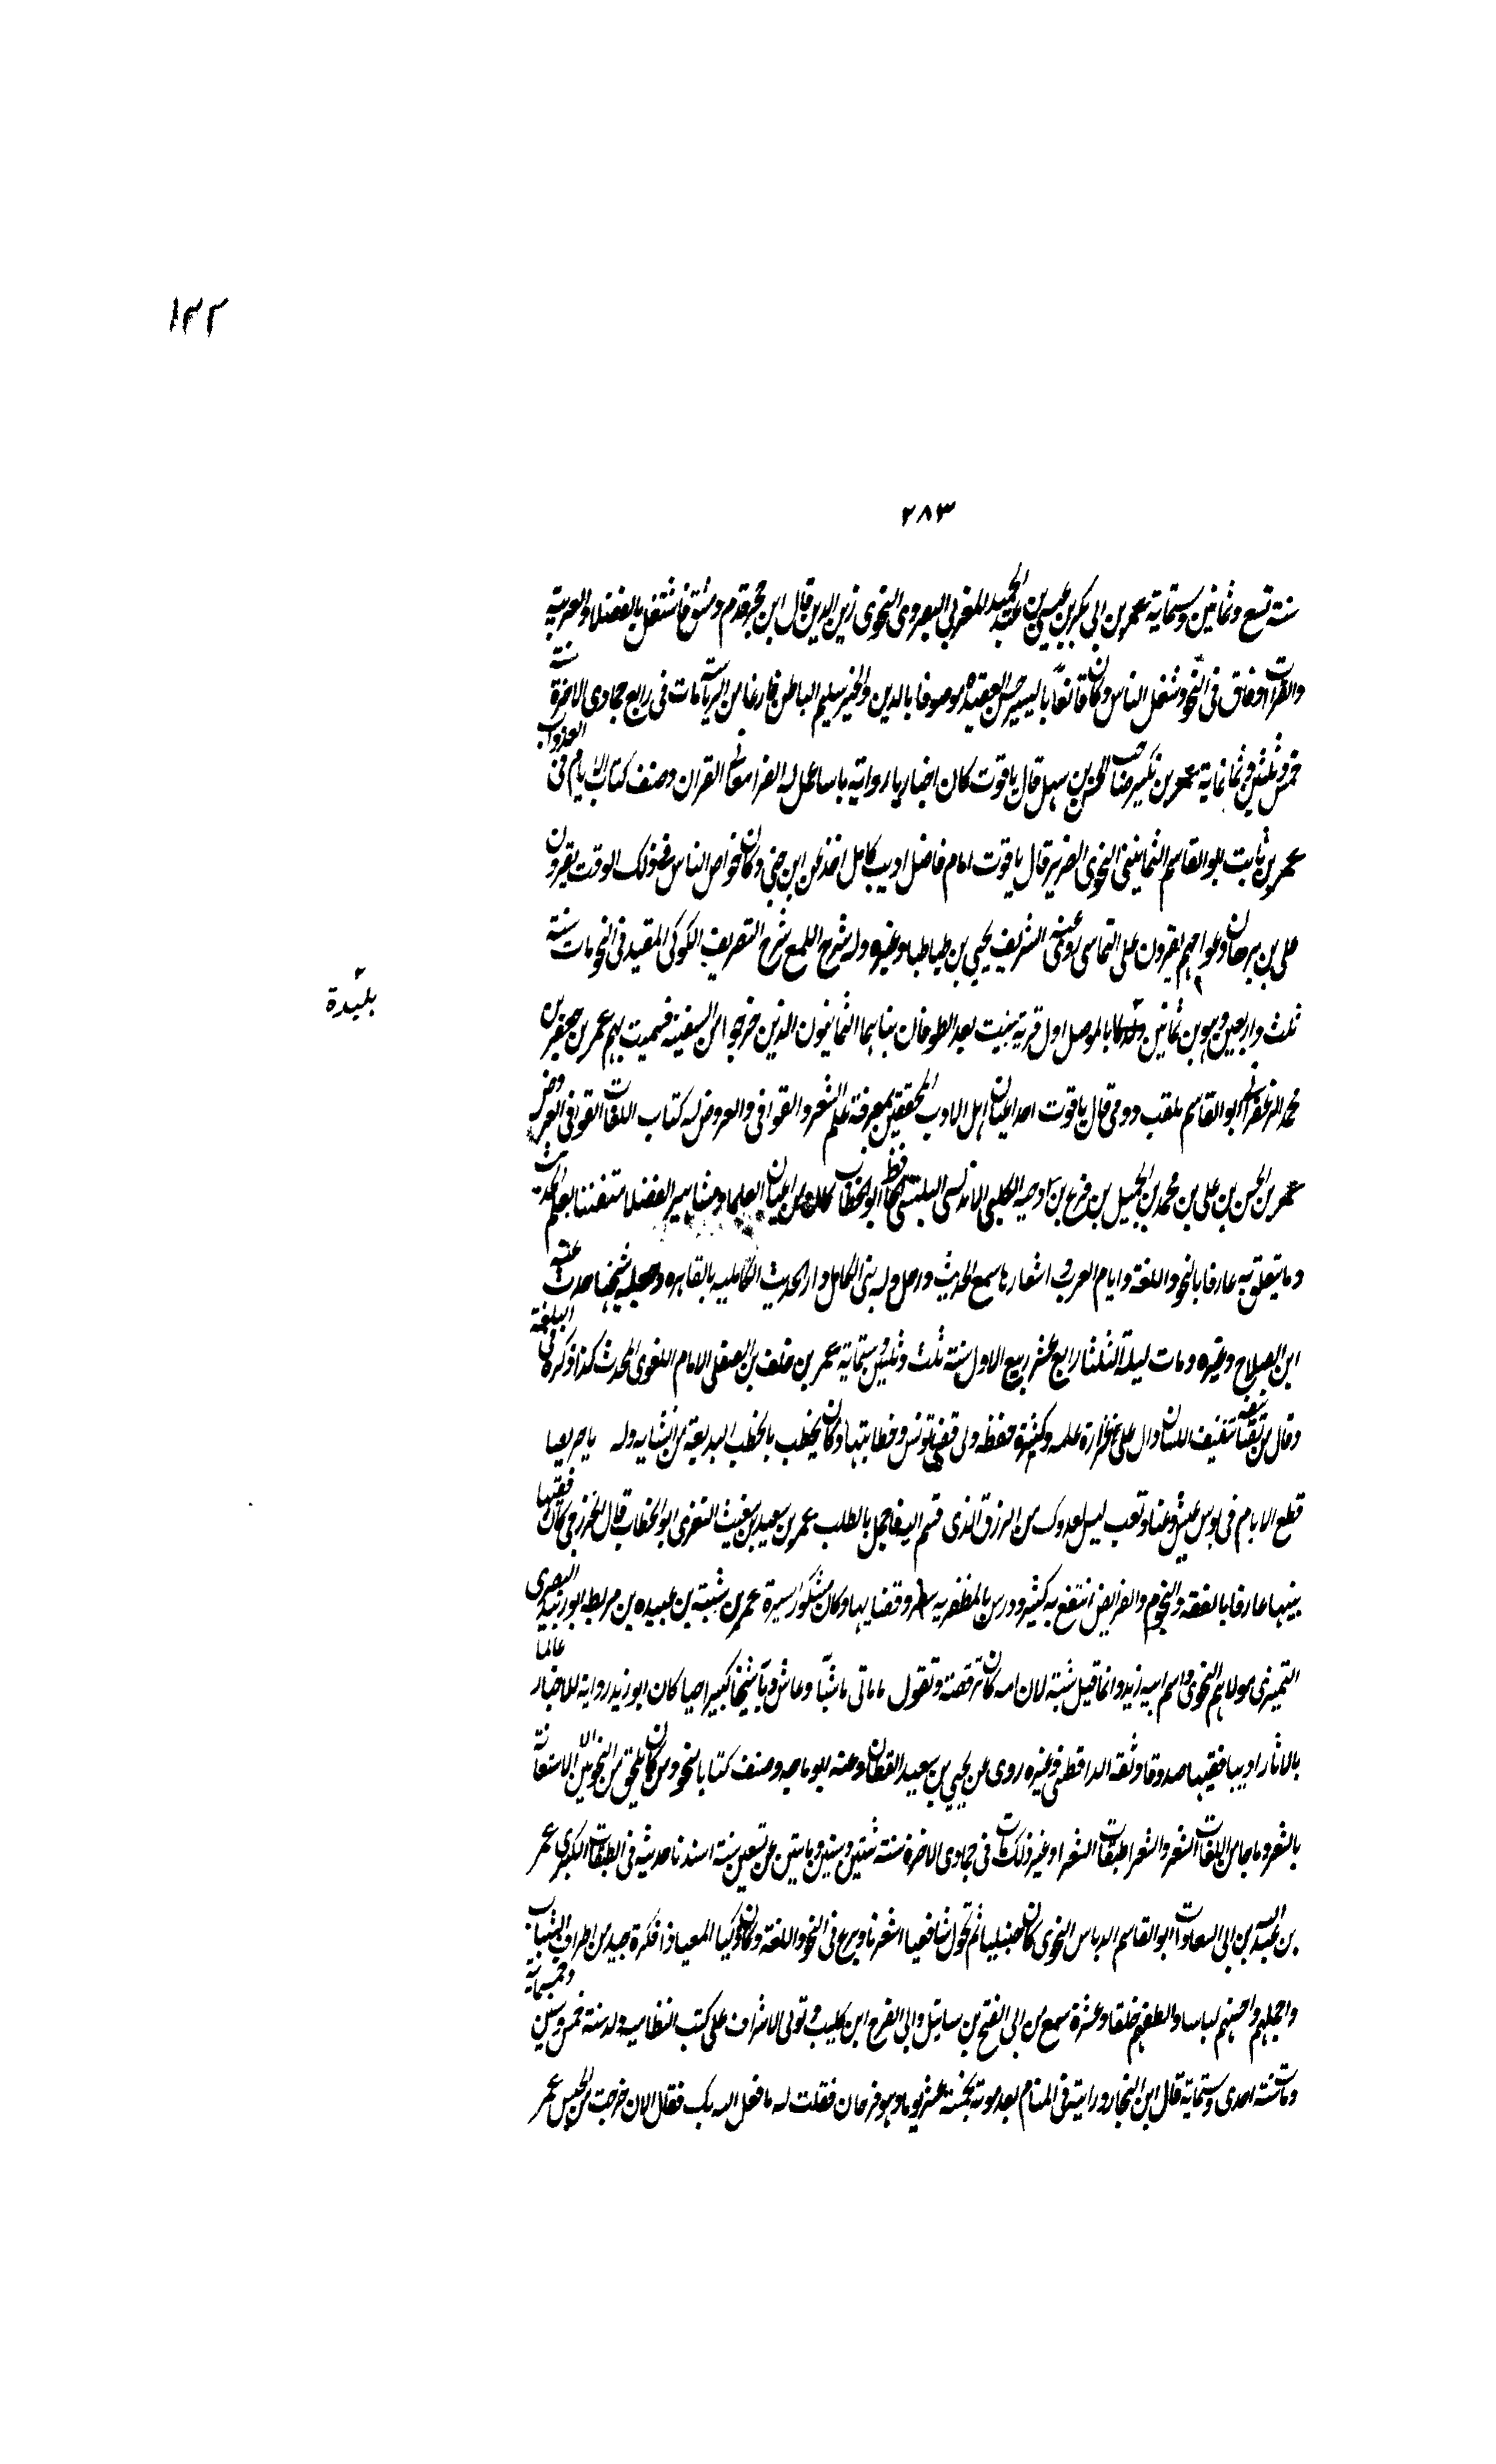 ١٣٢
٢٨٣
سنة تسع وثمانين وستماية عمر بن ابى بكر بن عيسى بن عبد الحميد المغربي البصروى النحوى زين الدين قال ابن حجر قدم دمشق فاشتغل بالفضل والعربية
والقراات وفاق فى النحو وشغل الناس وكان قانعا باليسير حسن العقيدة موصوفا بالدين والخير سليم الباطن فارغا من الرياسة مات فى رابع جمادى الاخرة سنة
خمس وثلثين وثمانماية عمر بن بكير صاحب الحسن بن سهل قال ياقوت كان اخباريا رواية ناسبا عمل له الفرا معانى القران وصنف كتاب الايام فى العدواب
عمر بن ثابت ابو القاسم الثمانينى النحوى الضرير قال ياقوت امام فاضل اديب كامل اخذ عن ابن جنى وكان خواص الناس فى ذلك الوقت يقرون
على بن برهان وعوامهم يقرون على الثمانينى روى عنه الشريف يحيى بن طباطبا وغيره وله شرح اللمع شرح التصريف الملوكى المقيد فى النحو مات سنة
ثلث واربعين وهو من ثمانين بليدة بالموصل اول قرية بنيت بعد الطوفان بناها الثمانون الذين خرجوا من السفينة فسميت بهم عمر بن جعفر بن
بليدة
محمد الزعفرانى ابو القاسم يلقب دومى قال ياقوت احد اعيان اهل الادب المحققين بمعرفة علم الشعر والقوافى والعروض له كتاب اللغات القوافى العروض
عمر بن الحسن بن على بن محمد بن الجميل بن فرح بن دحية الكلبى الاندلسى البلنسى الحافظ ابو الخطاب كان من اعيان العلما ومشاهير الفضلا متفننا بعلم الحديث
وما يتعلق به عارفا بالنحو واللغة وايام العرب واشعارها سمع الحديث ورحل وله بنى الكامل دار الحديث الكاملية بالقاهرة وجعله شيخها حدث عنه
ابن الصلاح وغيره ومات ليلة الثلثا رابع عشر ربيع الاول سنة ثلث وثلثين وستماية عمر بن خلف بن الصقلى الامام اللغوى المحدث كذا ذكره فى البلغة
وقال من تصنيفه تثقيف اللسان دال على غزارة علمه وكثرة حفظه ولى قضا تونس وخطابتها وكان يخطب بالخطب البديعة من انشايه وله يا حريصا
قطع الايام فى بوس عيش وعنا وتعب ليس يعدوك من الرزق الذى قسم الله فاجمل بالطلب عمر بن سعيد بن مغيث التعزى ابو الخطاب قال الخزرجى كان فقيها
بينها عارفا بالفقه والنجوم والفرايض انتفع به كثير ودرس بالمظفرية وقضا بها وكان مشكور السيرة عمر بن شبة بن عبيده بن ريطة ابو زيد البصرى
النميرى مولاهم النحوى واسم ابيه زيد وانما قيل شبة لان امه كانت ترقصه وتقول يا بابى يا شبا وعاش حتى دبا شيخا كبيرا خبا كان ابو زيد رواية للاخبار عالما
بالاثار اديبا فقيها صدوقا وثقه الدارقطنى وغيره روى عن يحيى بن سعيد القطان وعنه ابن ماجه وصنف كتابا نحو ومن كان يلحن من النحويين الاستعانة
بالشعر وما جا من اللغات الشعر والشعرا طبقات الشعرا وغير ذلك مات فى جمادى الاخرة سنة ثنتين وستين ومايتين عن تسعين سنة اسندنا حديثه فى الطبقات الكبرى عمر
بن عبد الله بن ابى السعادات ابو القاسم الدباس النحوى كان حنبليا ثم تحول شافعيا اشعريا وبرع فى النحو واللغة وكان ذكيا المعيا ذا فكرة جيدة من اظرف الشباب
واجملهم واحسنهم لباسا والطفهم خلقا وعشرة سمع من ابى الفتح بن شاتيل وابى الفرج ابن كليب وتولى الاشراف على كتب النظامية ولد سنة خمس وستين وخمسماية
ومات سنة احدى وستماية قال ابن النجار ورايته فى المنام بعد موته بخمسة عشر يوما وهو فرحان فقلت له ما فعل الله بك فقال الان خرجت من الحبس عمر